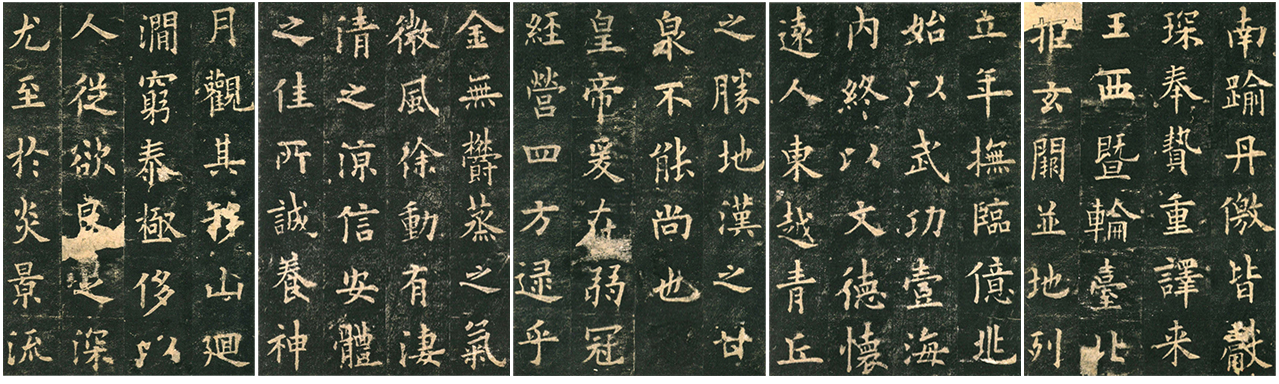 月觀其移山廻
澗窮泰極侈以
人從欲良足深
尤至於炎景流
金無鬱蒸之氣
微風徐動有淒
清之涼信安體
之佳所誠養神
之勝地漢之甘
泉不能尚也
皇帝爰在弱冠
經營四方逮乎
立年撫臨億兆
始以武功壹海
內終以文德懷
遠人東越青丘
南踰丹儌皆獻
琛奉贄重譯来
王西暨輪臺北
拒玄闕並地列